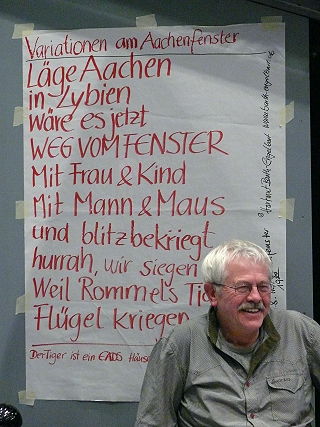 Variationen am Aachenfenster
Läge Aachen
in Lybien
wäre es jetzt
WEG VOM FENSTER
Mit Frau & Kind
Mit Mann & Maus
und blitzbekriegt
hurrah, wir siegen
Weil Rommels
Flügel kriegen
Der Tiger ist ein EADS